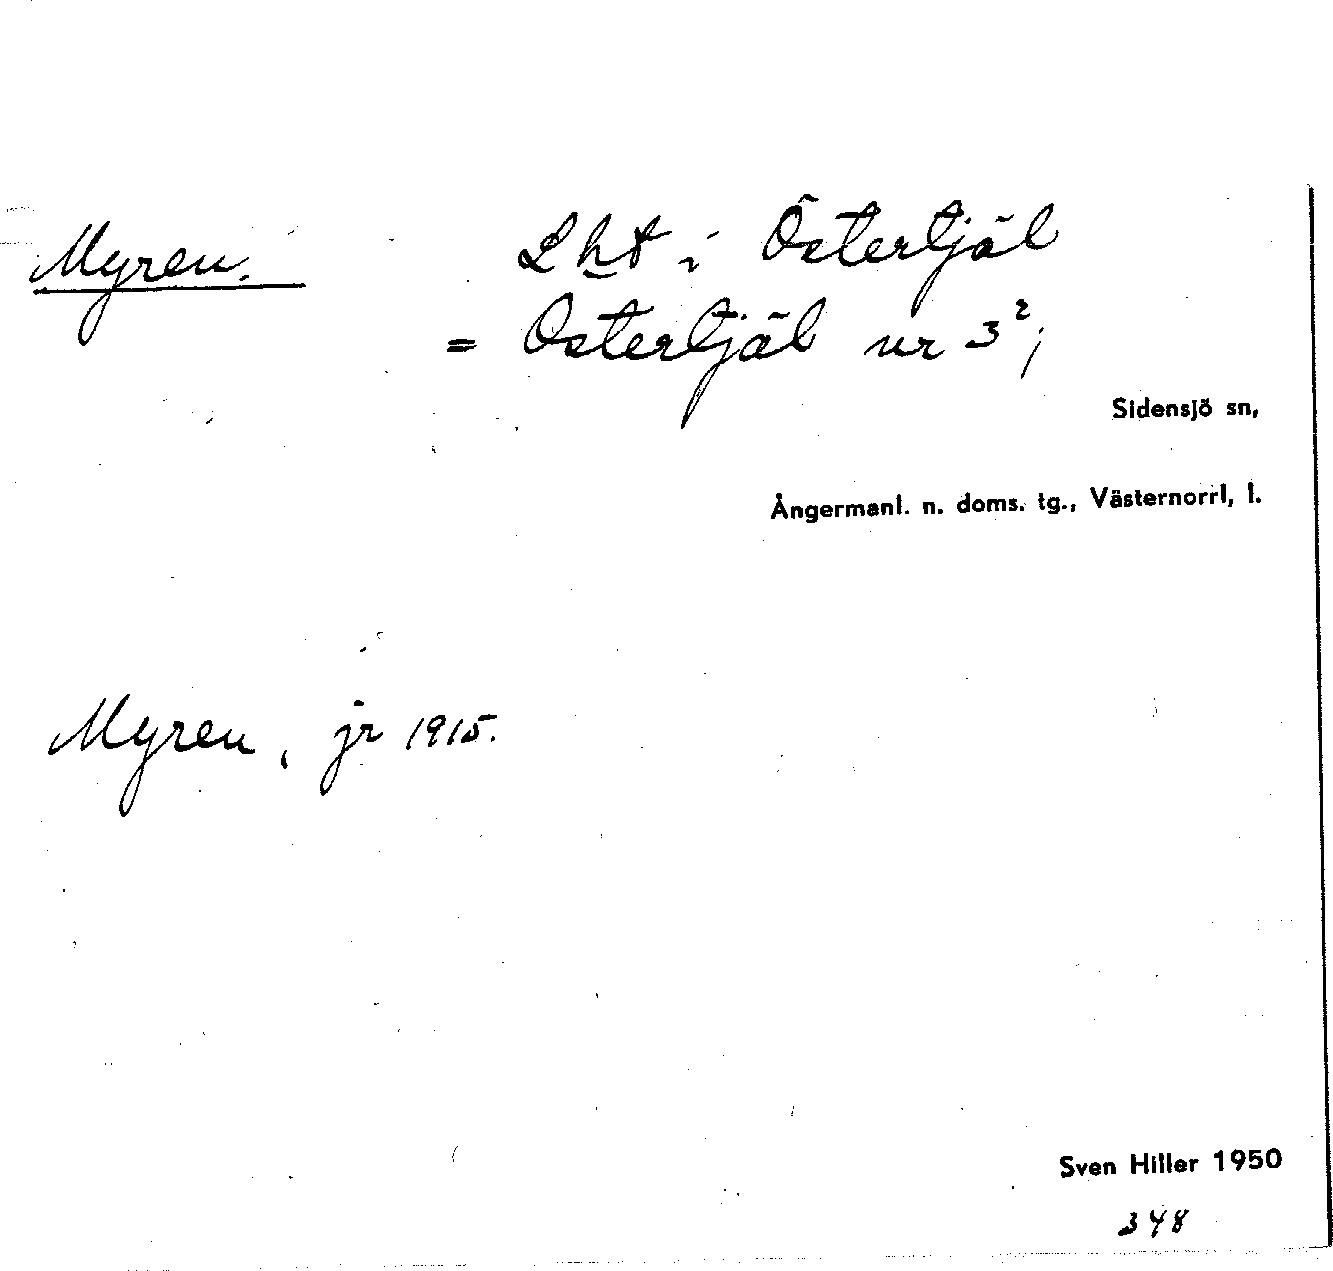 Myren. Lht i Östertjäl
= Östertjäl nr 3²;
Sidensjö sn,
Ångermanl. n. doms. tg., Västernorrl, l.
Myren, jr 1915.
Sven Hiller 1950
348